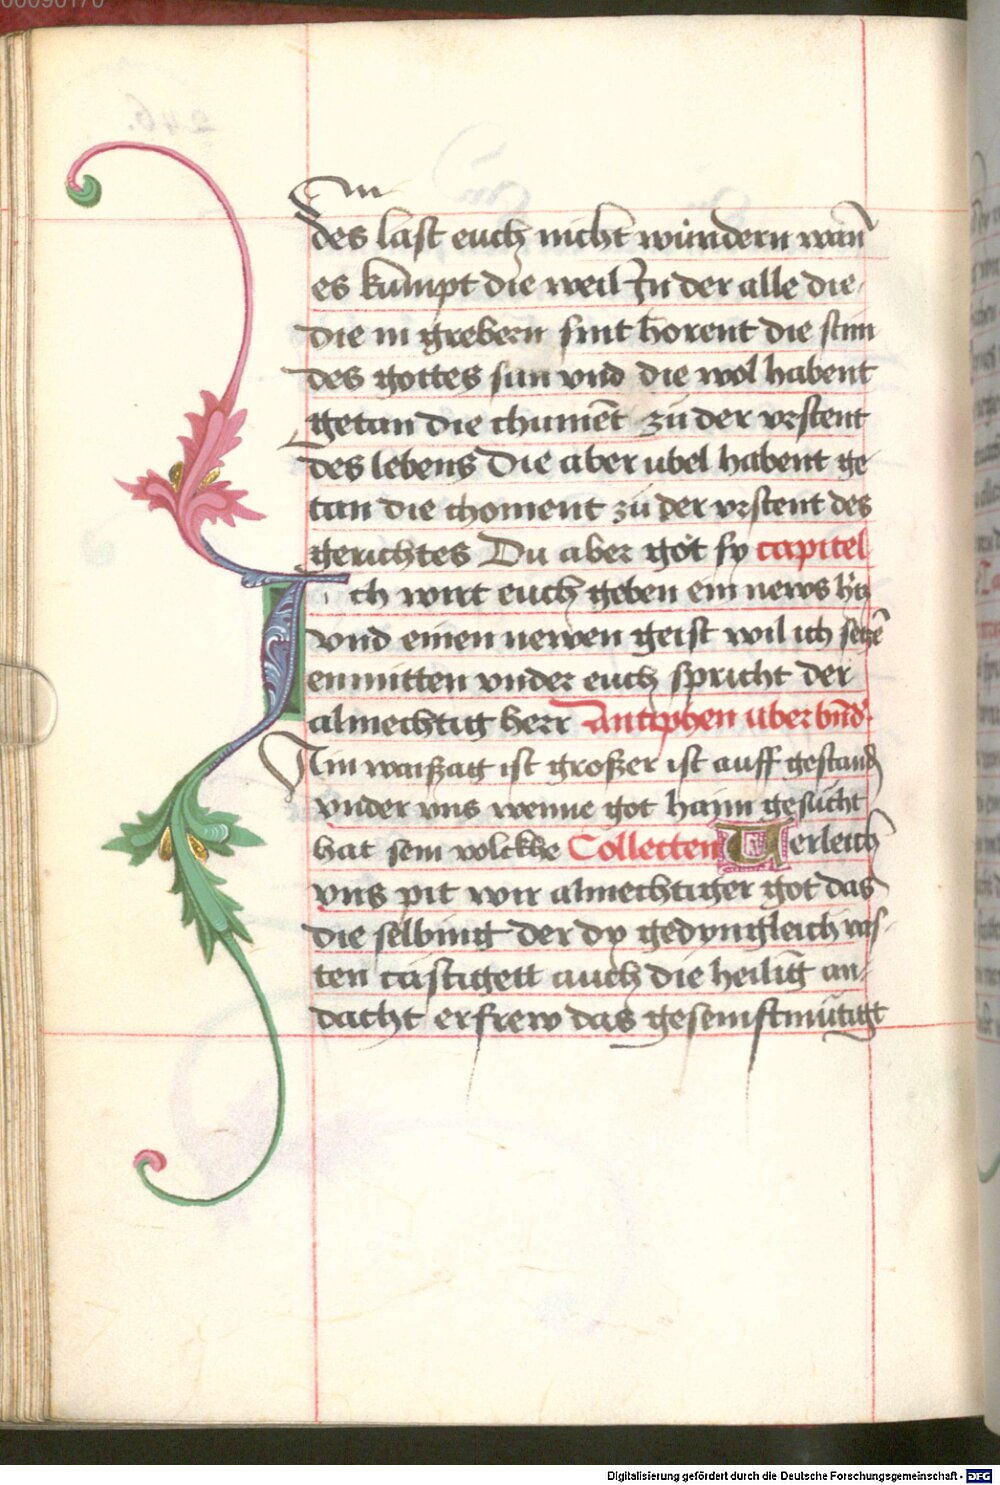 des last euch nicht wundern wan̄
es kumpt die weil In der alle die
die in grebern sint horent die stim
des gottes sun vnd die wol habent
getan die chumēt zu der vrstent
des lebens Die aber ubel habent ge
tan die choment zu der vrstent des
gerichtes Du aber got sy capitel
Ich wirt euch geben ein news
vnd einen newen geist wil ich seczē
enmitten vnder euch spricht der
almechtig herr Antiphen uber
Ain waißag ist großer ist auff gestand
vnder vns wenne got haim gesucht
hat sein volckhe Collecten Uerleich
vns pit wir almechtiger got das
die selbing der dy gedyngleich vas-
ten castigett auch die heilig an-
dacht erfrew das gesenftmütigt
Digitalisierung gefördert durch die Deutsche Forschungsgemeinschaft - DFG